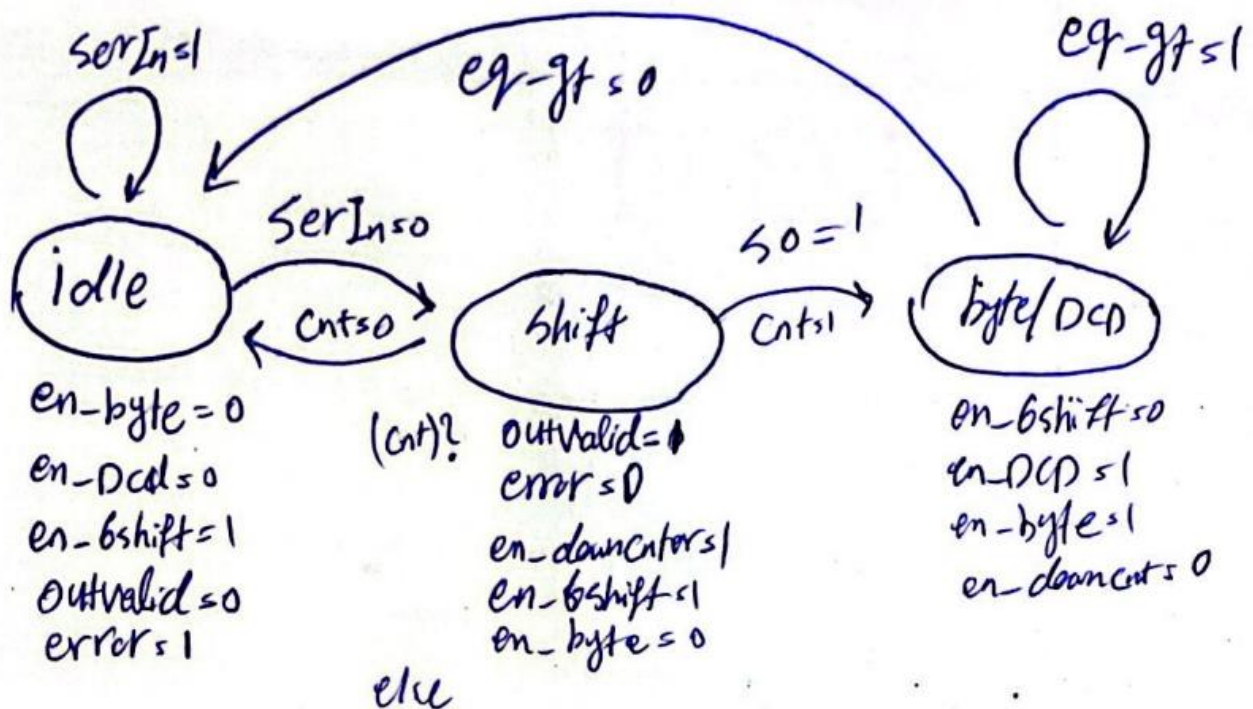 serIn=1
eq-gt=0
eq-gt=1
serIn=0
so=1
idle
cnt=0
shift
cnt=1
byte/DCD
en-byte=0
en-Dcd=0
en-6shift=1
outvalid=0
error=1
(cnt)?
outvalid=1
error=0
en-downcnter=1
en-6shift=1
en-byte=0
en-6shift=0
en-DCD=1
en-byte=1
en-downcnt=0
else